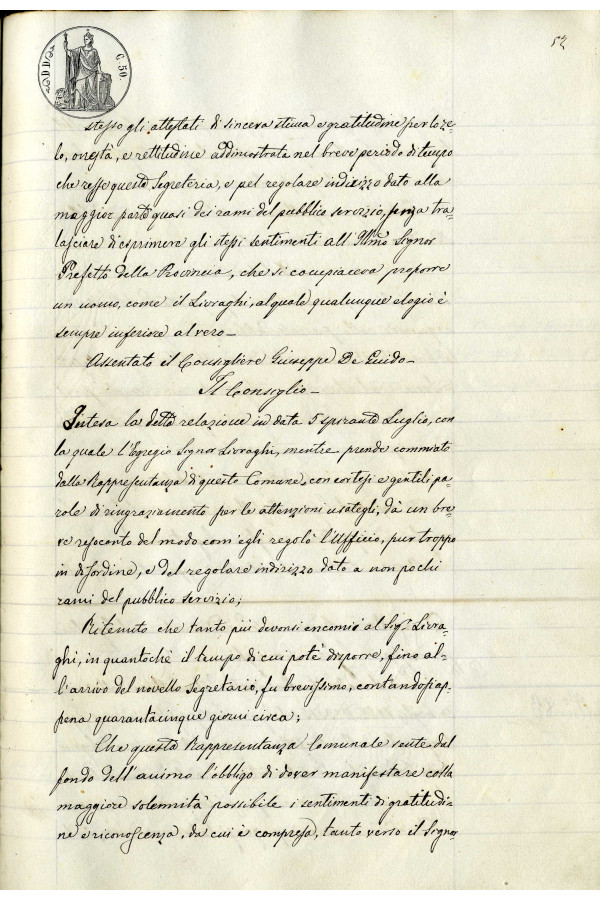 52
DD
C. 50.
stesso gli attestati di sincera stima e gratitudine per lo ze-
lo, onestà, e rettitudine addimostrata nel breve periodo di tempo
che resse questa Segreteria, e pel regolare indirizzo dato alla
maggior parte quasi dei rami del pubblico servizio, senza tra-
lasciare di esprimere gli stessi sentimenti all'Illmo Signor
Prefetto della Provincia, che si compiaceva proporre
un uomo, come il Livraghi, al quale qualunque elogio è
sempre inferiore al vero_
Assentato il Consigliere Giuseppe De Guido_
Il Consiglio_
Intesa la detta relazione in data 5 spirante Luglio, con
la quale l'Egregio Signor Livraghi, mentre prende commiato
dalla Rappresentanza di questo Comune, con cortesi e gentili pa-
role di ringraziamento per le attenzioni usategli, dà un bre-
ve resoconto del modo com'egli regolò l'Ufficio, pur troppo
in disordine, e del regolare indirizzo dato a non pochi
rami del pubblico servizio;
Ritenuto che tanto più devonsi encomi al Sigr. Livra-
ghi, in quantochè il tempo di cui potè disporre, fino al-
l'arrivo del novello Segretario, fu brevissimo, contandosi ap-
pena quarantacinque giorni circa;
Che questa Rappresentanza Comunale sente dal
fondo dell'animo l'obbligo di dover manifestare colla
maggiore solennità possibile i sentimenti di gratitudi-
ne e riconoscenza, da cui è compresa, tanto verso il Signor